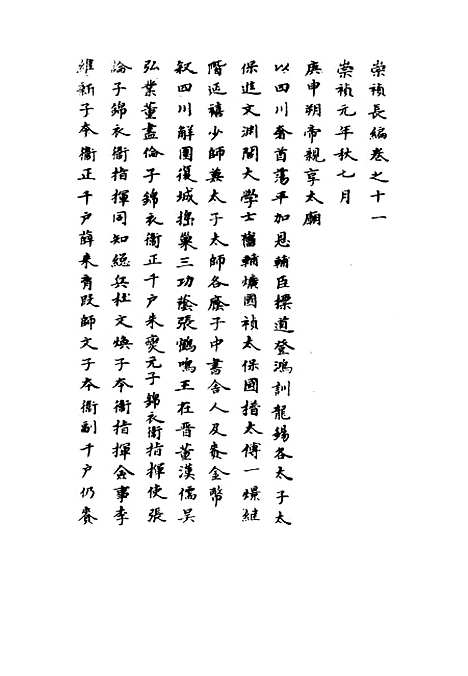 崇禎長編卷之十一
崇禎元年秋七月
庚申朔帝親享太廟
以四川奢酋蕩平加恩輔臣標道登鴻訓龍錫各太子太
保進文淵閣大學士舊輔爌國禎太保國𣚴太傅一燝維
階延禧少師兼太子太師各廕子中書舍人及賚金幣
叙四川解圍復城搗巢三功蔭張鶴鳴王在晉董漢儒吳
弘業董盡倫子錦衣衛正千戶朱燮元子錦衣衛指揮使張
論子錦衣衛指揮同知總兵杜文煥子本衛指揮僉事李
維新子本衛正千戶薛來胥段師文子本衛副千戶仍賚